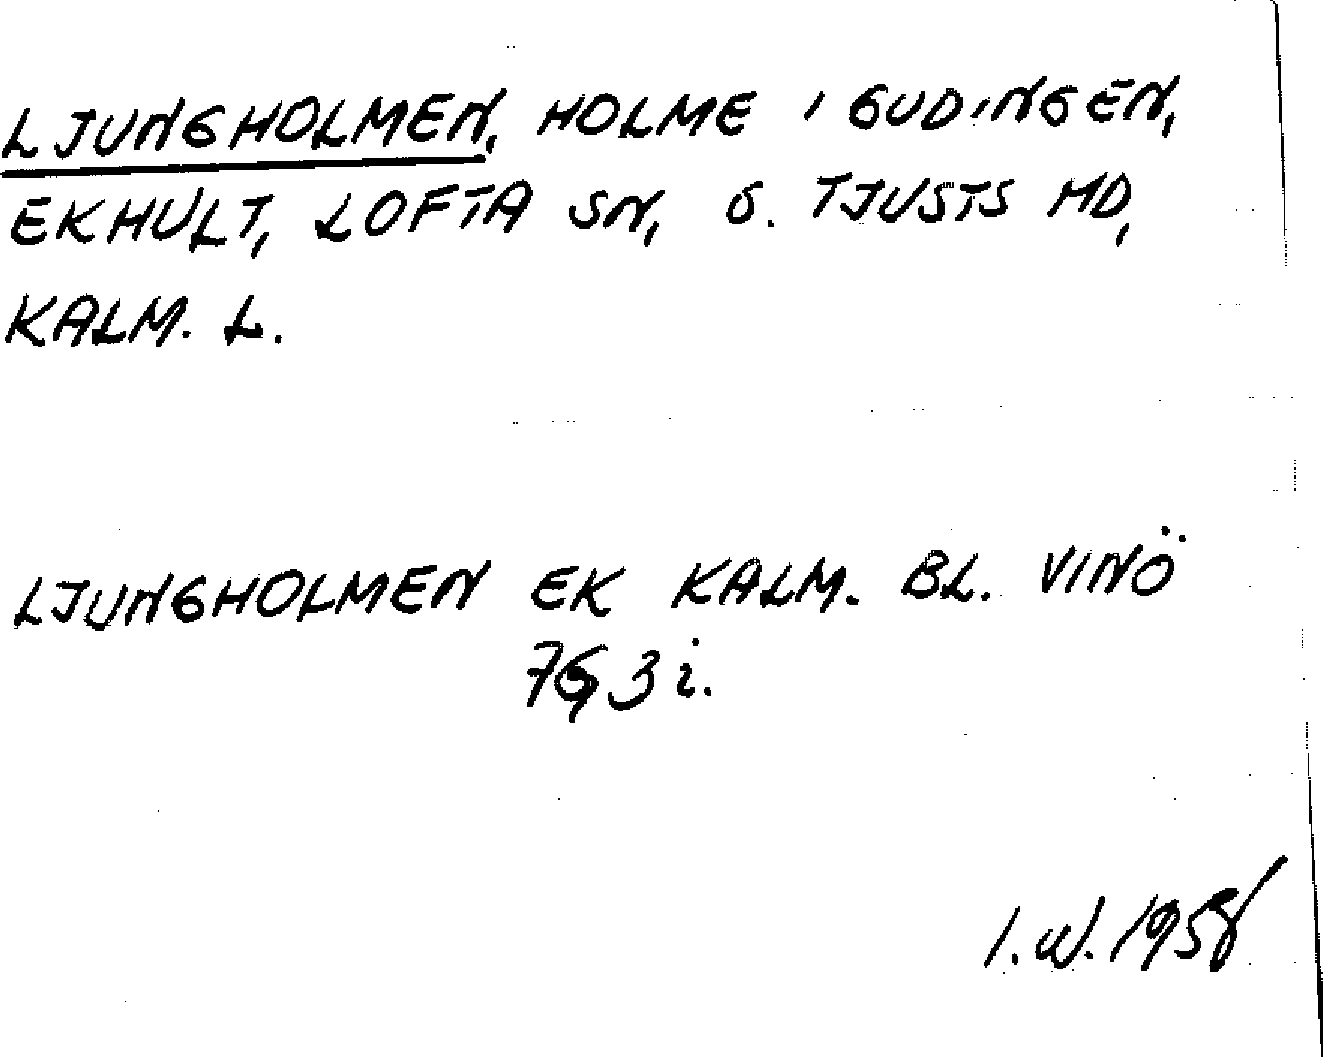 LJUNGHOLMEN, HOLME I GUDINGEN,
EKHULT, LOFTA SN, S. TJUSTS HD,
KALM. L.
LJUNGHOLMEN EK KALM. BL. VINÖ
76, 3 i.
I.W. 1958